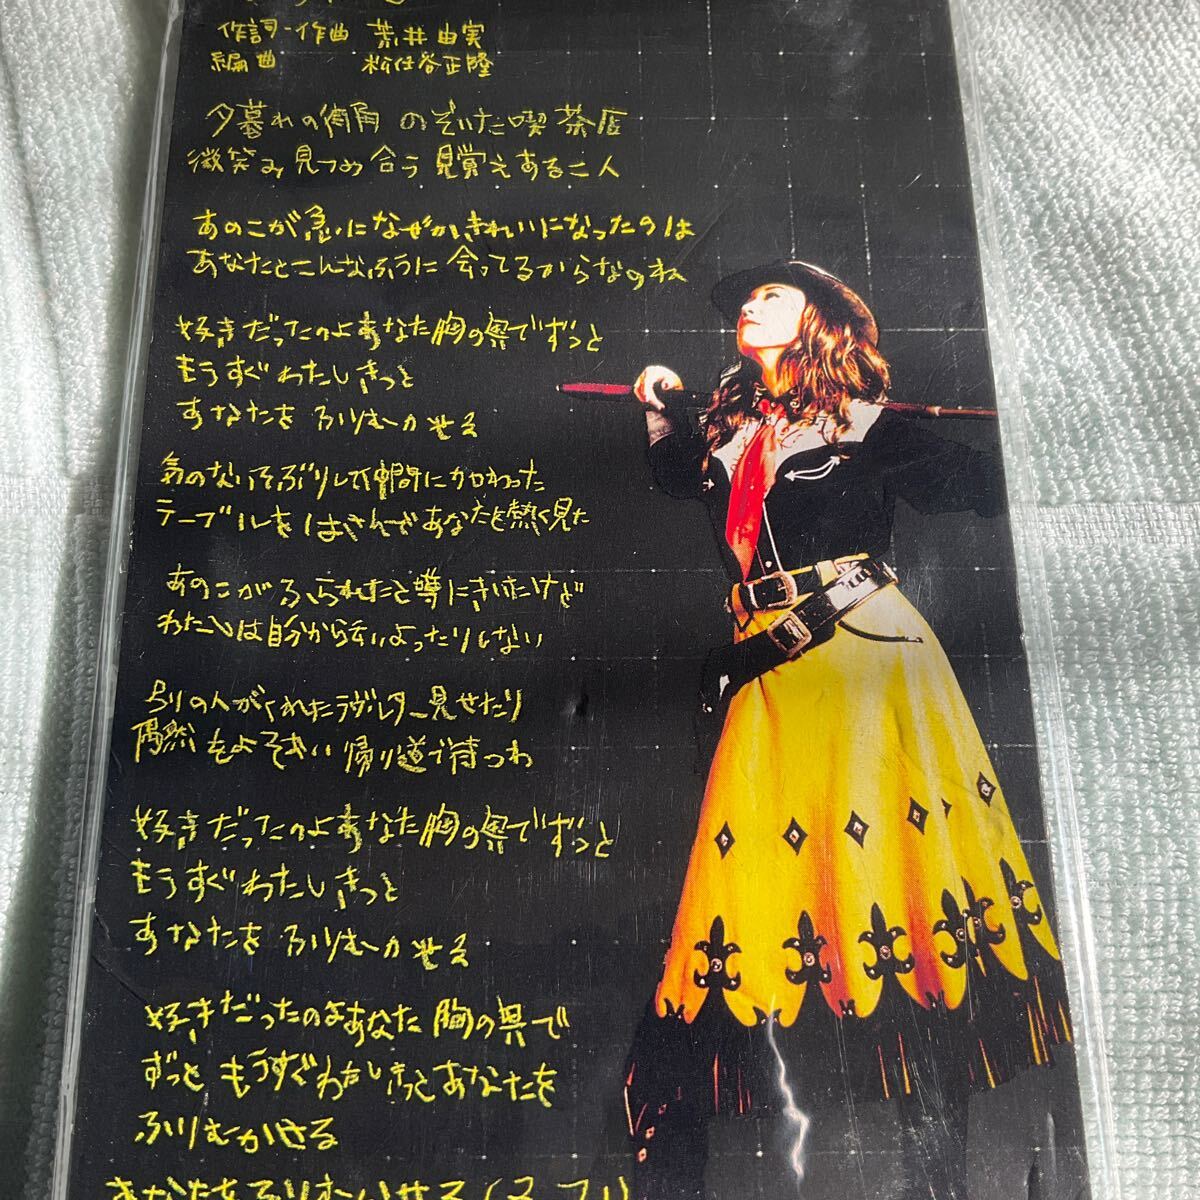 作詞・作曲 荒井由実
編曲 松任谷正隆
夕暮れの街角 のぞいた喫茶店
微笑み見つめ合う 見覚えある二人
あのこが急になぜかきれいになったのは
あなたとこんなふうに会ってるからなのね
好きだったのよあなた胸の奥でずっと
もうすぐわたしきっと
あなたを ふりむかせる
気のないそぶりして仲間にかかわった
テーブルをはさんであなたを熱く見た
あのこがふられたと噂にきいたけど
わたしは自分から云いよったりしない
別の人がくれたラヴレター見せたり
偶然をよそおい帰り道で待つわ
好きだったのよあなた胸の奥でずっと
もうすぐわたしきっと
あなたを ふりむかせる
好きだったのよあなた胸の奥で
ずっと もうすぐわたしきっとあなたを
ふりむかせる
あなたをふりむかせる